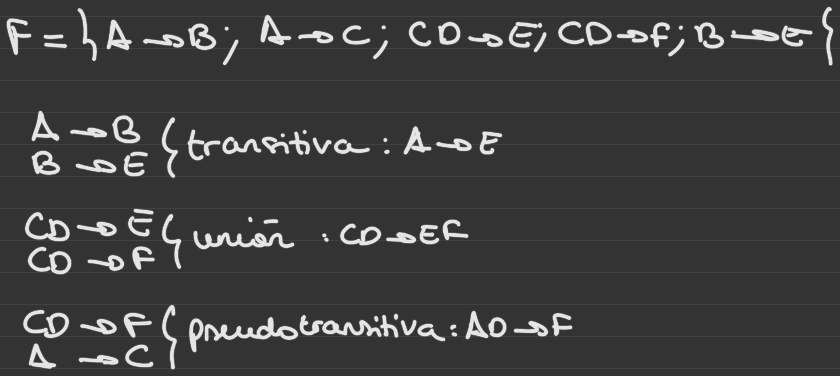 F = { A → B; A → C; CD → E; CD → F; B → E }
A → B
B → E } transitiva: A → E
CD → E
CD → F } unión: CD → EF
CD → F
A → C } pseudotransitiva: AD → F